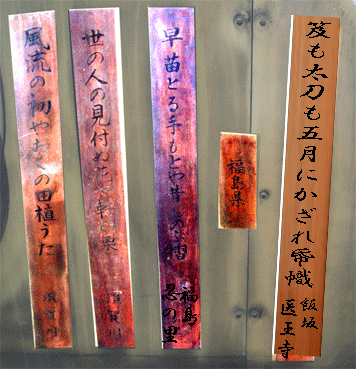 笈も太刀も五月にかざれ帋幟
飯坂
医王寺
福島県
早苗とる手もとや昔しのぶ摺
福島
忍の里
世の人の見付ぬ花や軒の栗
須賀川
風流の初やおくの田植うた
須賀川